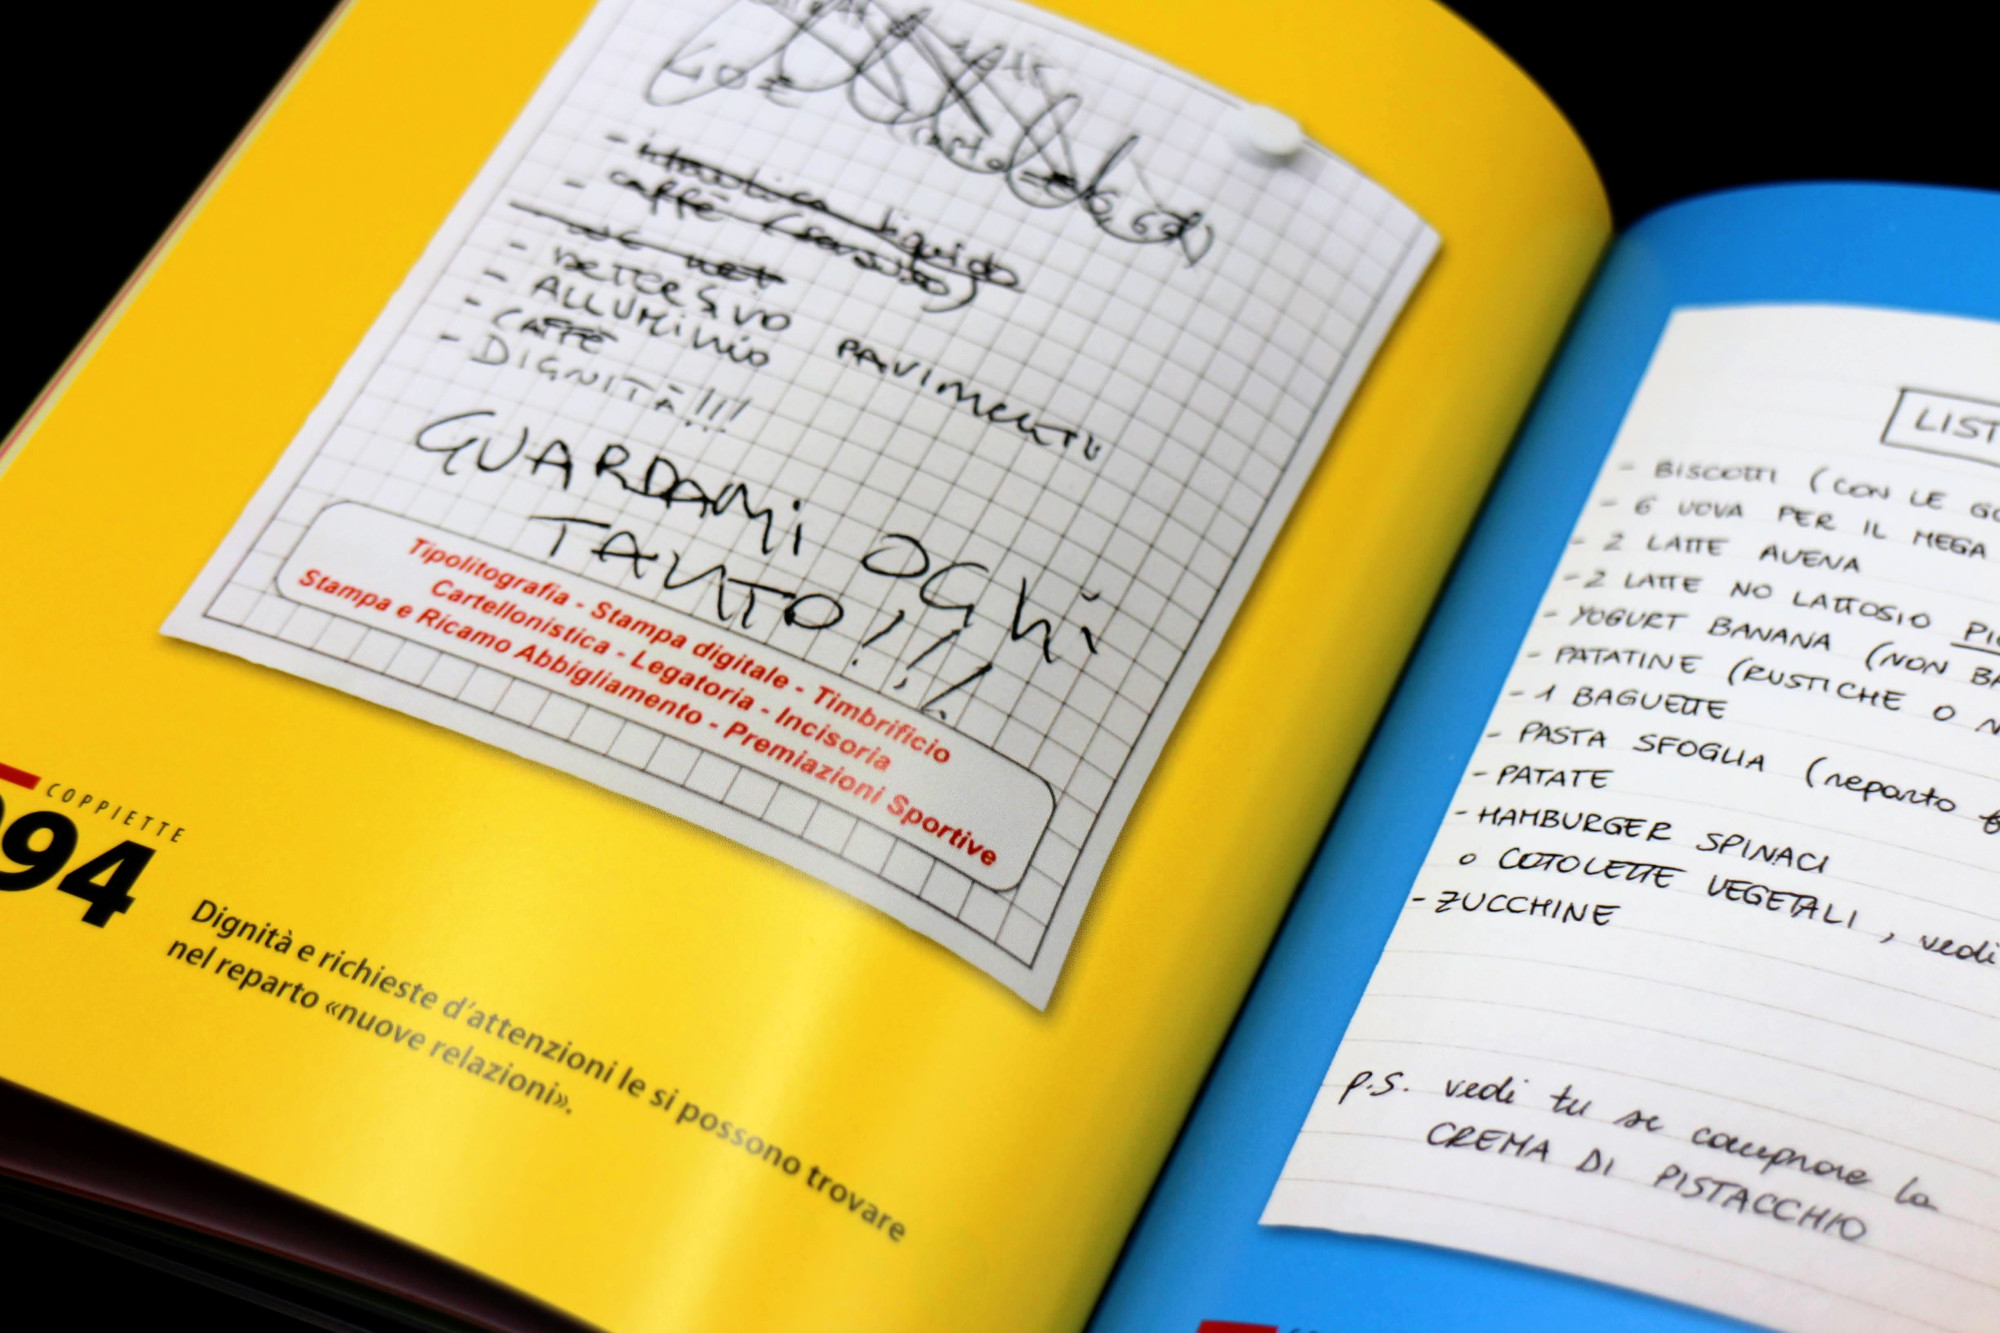 (costo 6,62)
- idraulico liquido
- caffè (
- wc net
- DETERSIVO PAVIMENTI
- ALLUMINIO
- CAFFÈ
- DIGNITÀ!!!
GUARDAMI OGNI
TANTO!!!
Tipolitografia - Stampa digitale - Timbrificio
Cartellonistica - Legatoria - Incisoria
Stampa e Ricamo Abbigliamento - Premiazioni Sportive
COPPIETTE
94
Dignità e richieste d'attenzioni le si possono trovare
nel reparto «nuove relazioni».
LIST
- BISCOTTI (CON LE GO
- 6 UOVA PER IL MEGA
- 2 LATTE AVENA
- 2 LATTE NO LATTOSIO
- YOGURT BANANA (NON BA
- PATATINE (RUSTICHE O N
- 1 BAGUETTE
- PASTA SFOGLIA (reparto
- PATATE
- HAMBURGER SPINACI
o COTOLETTE VEGETALI, vedi
- ZUCCHINE
p.s. vedi tu se comprare la
CREMA DI PISTACCHIO